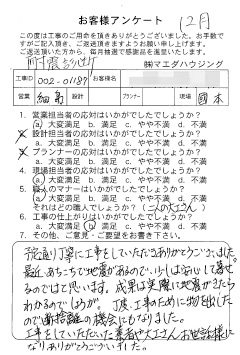 お客様アンケート 12月
この度は工事のご用命を頂きありがとうございました。お手数で
すがご記入頂き、ご返送頂きますようお願い申し上げます。
ご返送頂いた方から、毎月抽選で感謝品を進呈いたします。
耐震診断 ㈱マエダハウジング
工事ID 002-01187 お客様名
営業 細島 設計 プランナー 現場 國本
1. 営業担当者の応対はいかがでしたでしょうか？
a. 大変満足 b. 満足 c. やや不満 d. 不満
2. 設計担当者の応対はいかがでしたでしょうか？
a. 大変満足 b. 満足 c. やや不満 d. 不満
3. プランナーの応対はいかがでしたでしょうか？
a. 大変満足 b. 満足 c. やや不満 d. 不満
4. 現場担当者の応対はいかがでしたでしょうか？
a. 大変満足 b. 満足 c. やや不満 d. 不満
5. 職人のマナーはいかがでしたでしょうか？
a. 大変満足 b. 満足 c. やや不満 d. 不満
それはどの職人でしょうか？（二人の大工さん）
6. 工事の仕上がりはいかがでしたでしょうか？
a. 大変満足 b. 満足 c. やや不満 d. 不満
7. その他、ご意見・ご要望をお書き下さい。
予定通り丁寧に工事をしていただきありがとうございました。
最近、あちこちで地震があるので、少しは安心して暮せ
るのではと思います。成果は実際に地震がきたら
わかるのでしょうが。工事のために物を出した
ので断捨離の機会にもなりました。
工事をしていただいた業者や大工さんお世話様に
なりありがとうございました。